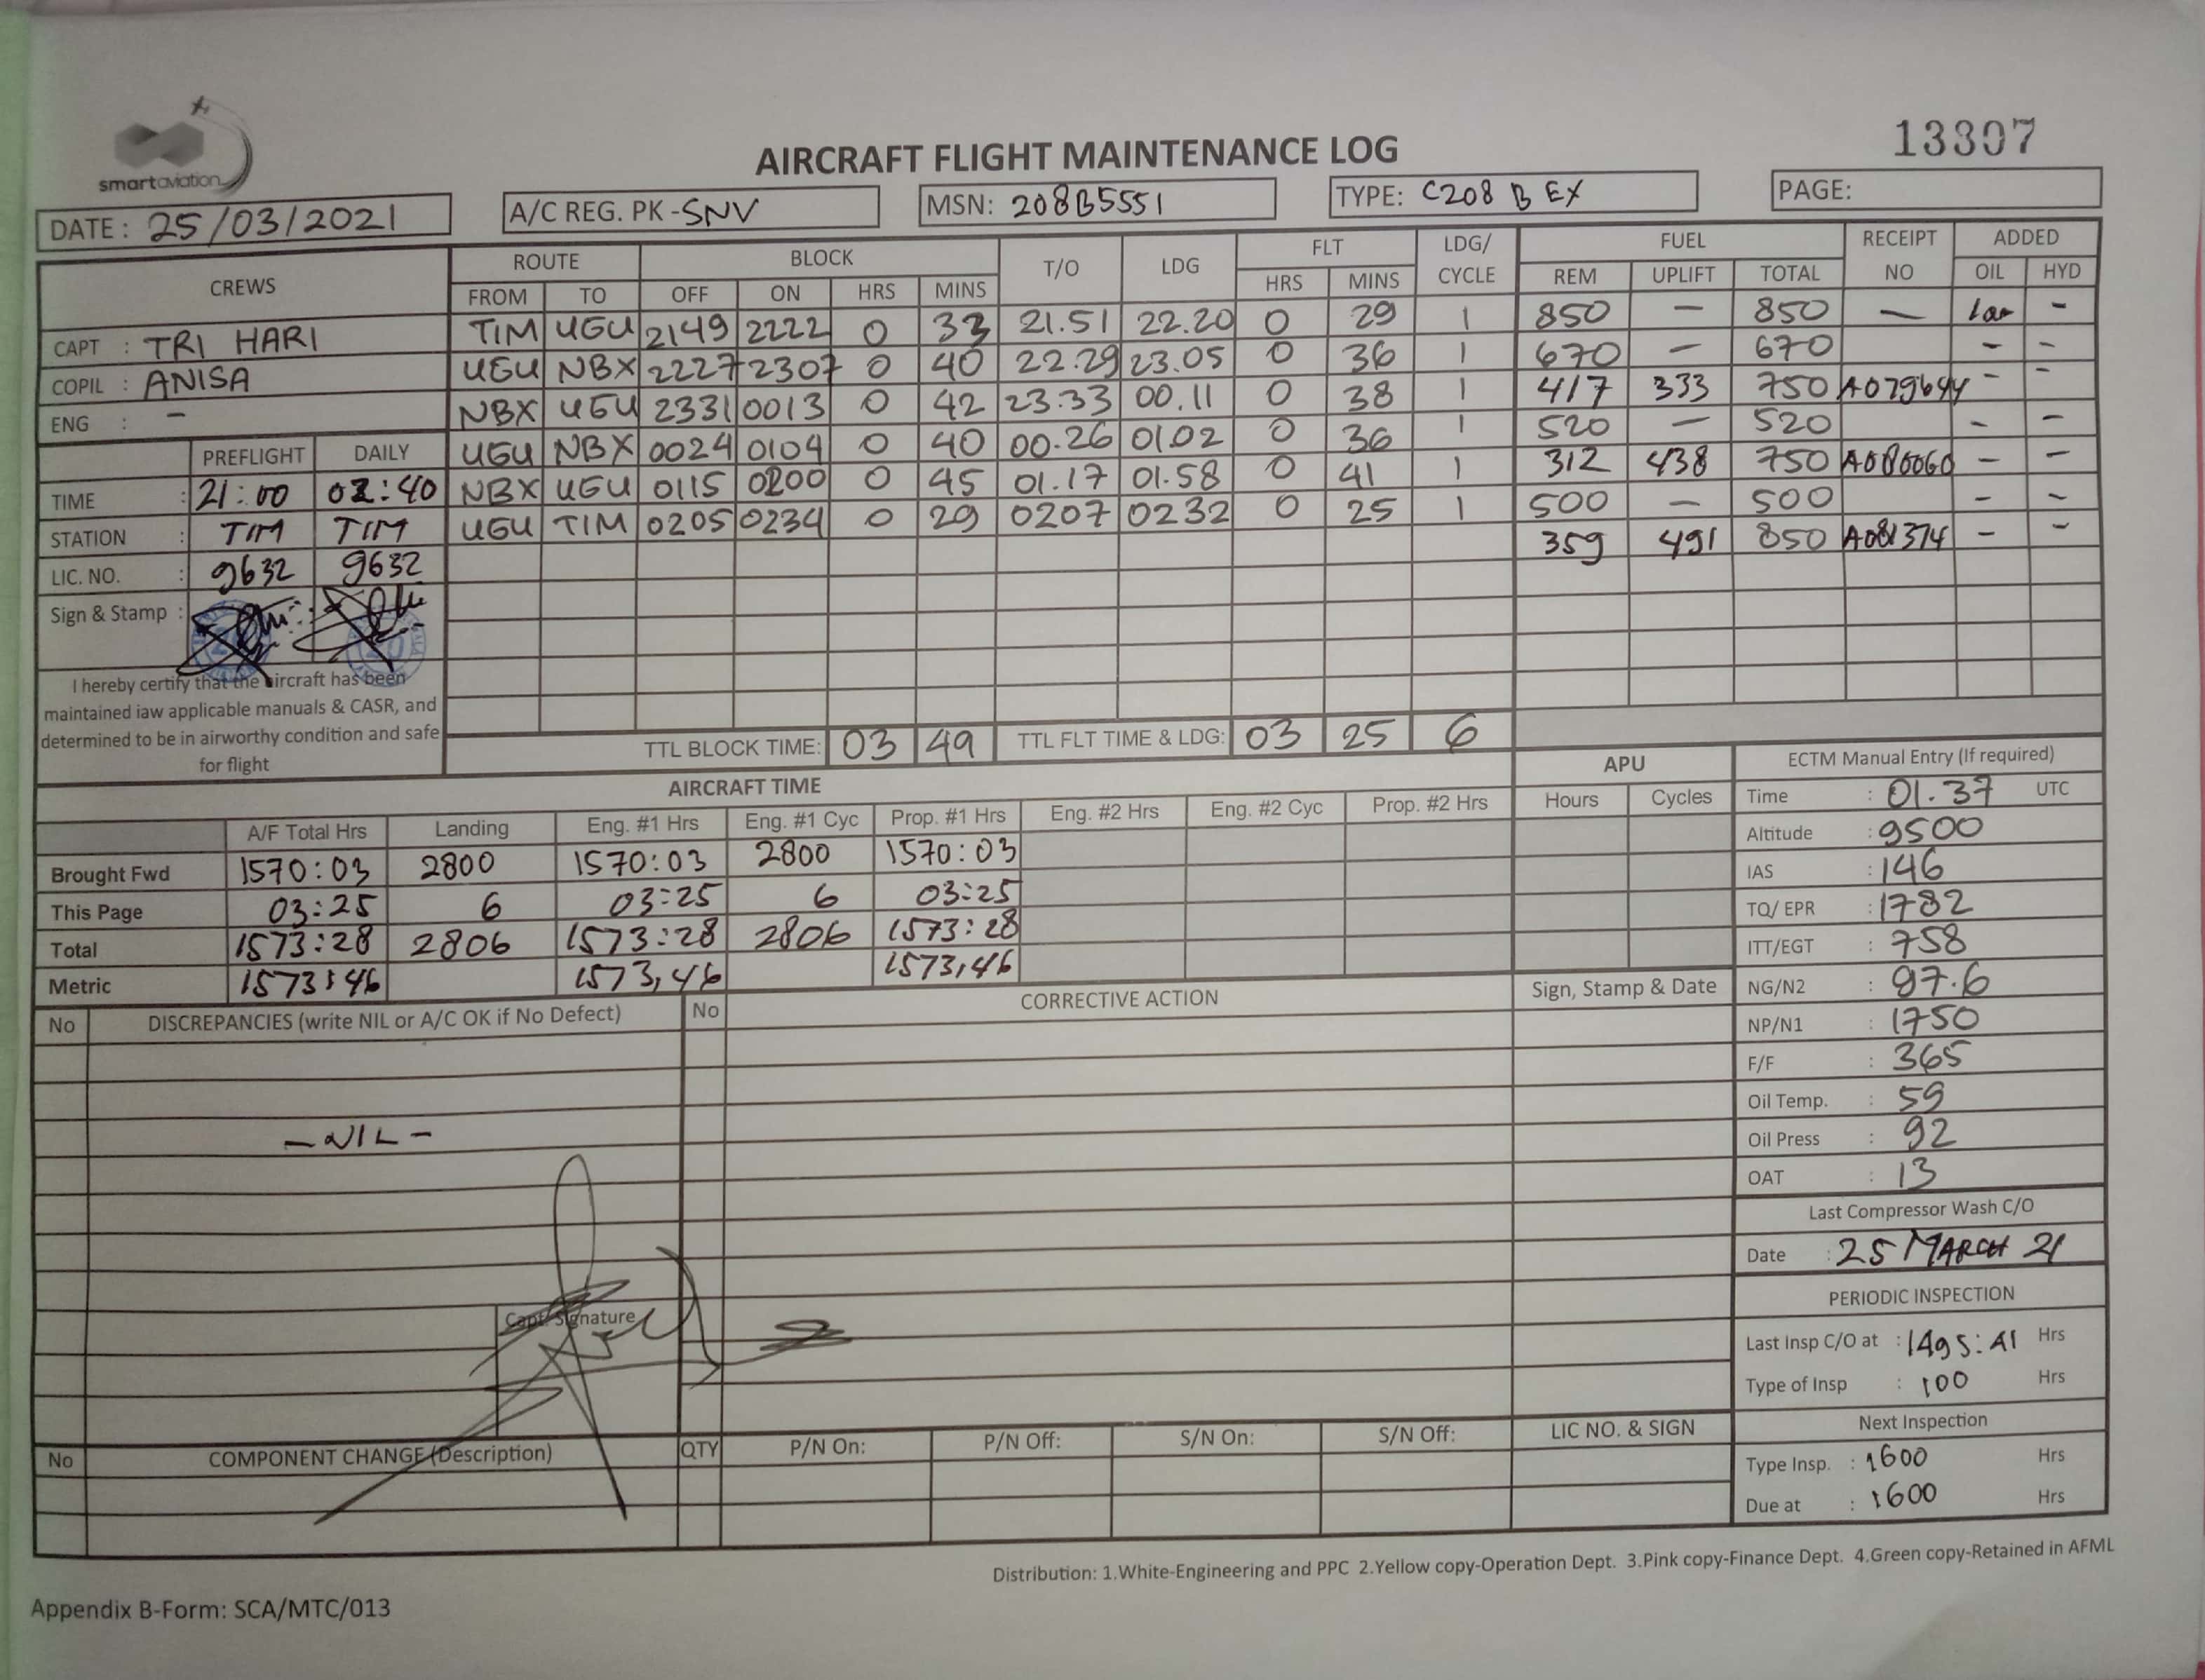 smartaviation
AIRCRAFT FLIGHT MAINTENANCE LOG
13307
DATE : 25/03/2021
A/C REG. PK -SNV
MSN: 208B5551
TYPE: C208 B EX
PAGE:
CREWS ROUTE BLOCK T/O LDG FLT LDG/ CYCLE FUEL RECEIPT NO ADDED
FROM TO OFF ON HRS MINS HRS MINS REM UPLIFT TOTAL OIL HYD
CAPT : TRI HARI
COPIL : ANISA
ENG : -
TIM UGU 2149 2222 0 33 21.51 22.20 0 29 1 850 - 850 - -
UGU NBX 2227 2307 0 40 22.29 23.05 0 36 1 670 - 670 - -
NBX UGU 2331 0013 0 42 23:33 00.11 0 38 1 417 333 750 A079644 - -
UGU NBX 0024 0104 0 40 00.26 0102 0 36 1 520 - 520 - -
NBX UGU 0115 0200 0 45 01.17 01.58 0 41 1 312 438 750 A080060 - -
UGU TIM 0205 0234 0 29 0207 0232 0 25 1 500 - 500 - -
359 491 850 A081374 - -
PREFLIGHT DAILY
TIME : 21:00 02:40
STATION : TIM TIM
LIC. NO. : 9632 9632
Sign & Stamp :
I hereby certify that the aircraft has been
maintained iaw applicable manuals & CASR, and
determined to be in airworthy condition and safe
for flight
TTL BLOCK TIME: 03 49 TTL FLT TIME & LDG: 03 25 6
AIRCRAFT TIME
APU
A/F Total Hrs Landing Eng. #1 Hrs Eng. #1 Cyc Prop. #1 Hrs Eng. #2 Hrs Eng. #2 Cyc Prop. #2 Hrs Hours Cycles
Brought Fwd 1570:03 2800 1570:03 2800 1570:03
This Page 03:25 6 03:25 6 03:25
Total 1573:28 2806 1573:28 2806 1573:28
Metric 1573:46 1573,46 1573,46
ECTM Manual Entry (If required)
Time : 01.37 UTC
Altitude : 9500
IAS : 146
TQ/ EPR : 1782
ITT/EGT : 758
NG/N2 : 97.6
NP/N1 : 1750
F/F : 365
Oil Temp. : 59
Oil Press : 92
OAT : 13
Last Compressor Wash C/O
Date : 25 MARCH 21
PERIODIC INSPECTION
Last Insp C/O at : 1495:41 Hrs
Type of Insp : 100 Hrs
Next Inspection
Type Insp. : 1600 Hrs
Due at : 1600 Hrs
No DISCREPANCIES (write NIL or A/C OK if No Defect) No CORRECTIVE ACTION Sign, Stamp & Date
- NIL -
Capt. Signature
No COMPONENT CHANGE (Description) QTY P/N On: P/N Off: S/N On: S/N Off: LIC NO. & SIGN
Distribution: 1.White-Engineering and PPC 2.Yellow copy-Operation Dept. 3.Pink copy-Finance Dept. 4.Green copy-Retained in AFML
Appendix B-Form: SCA/MTC/013